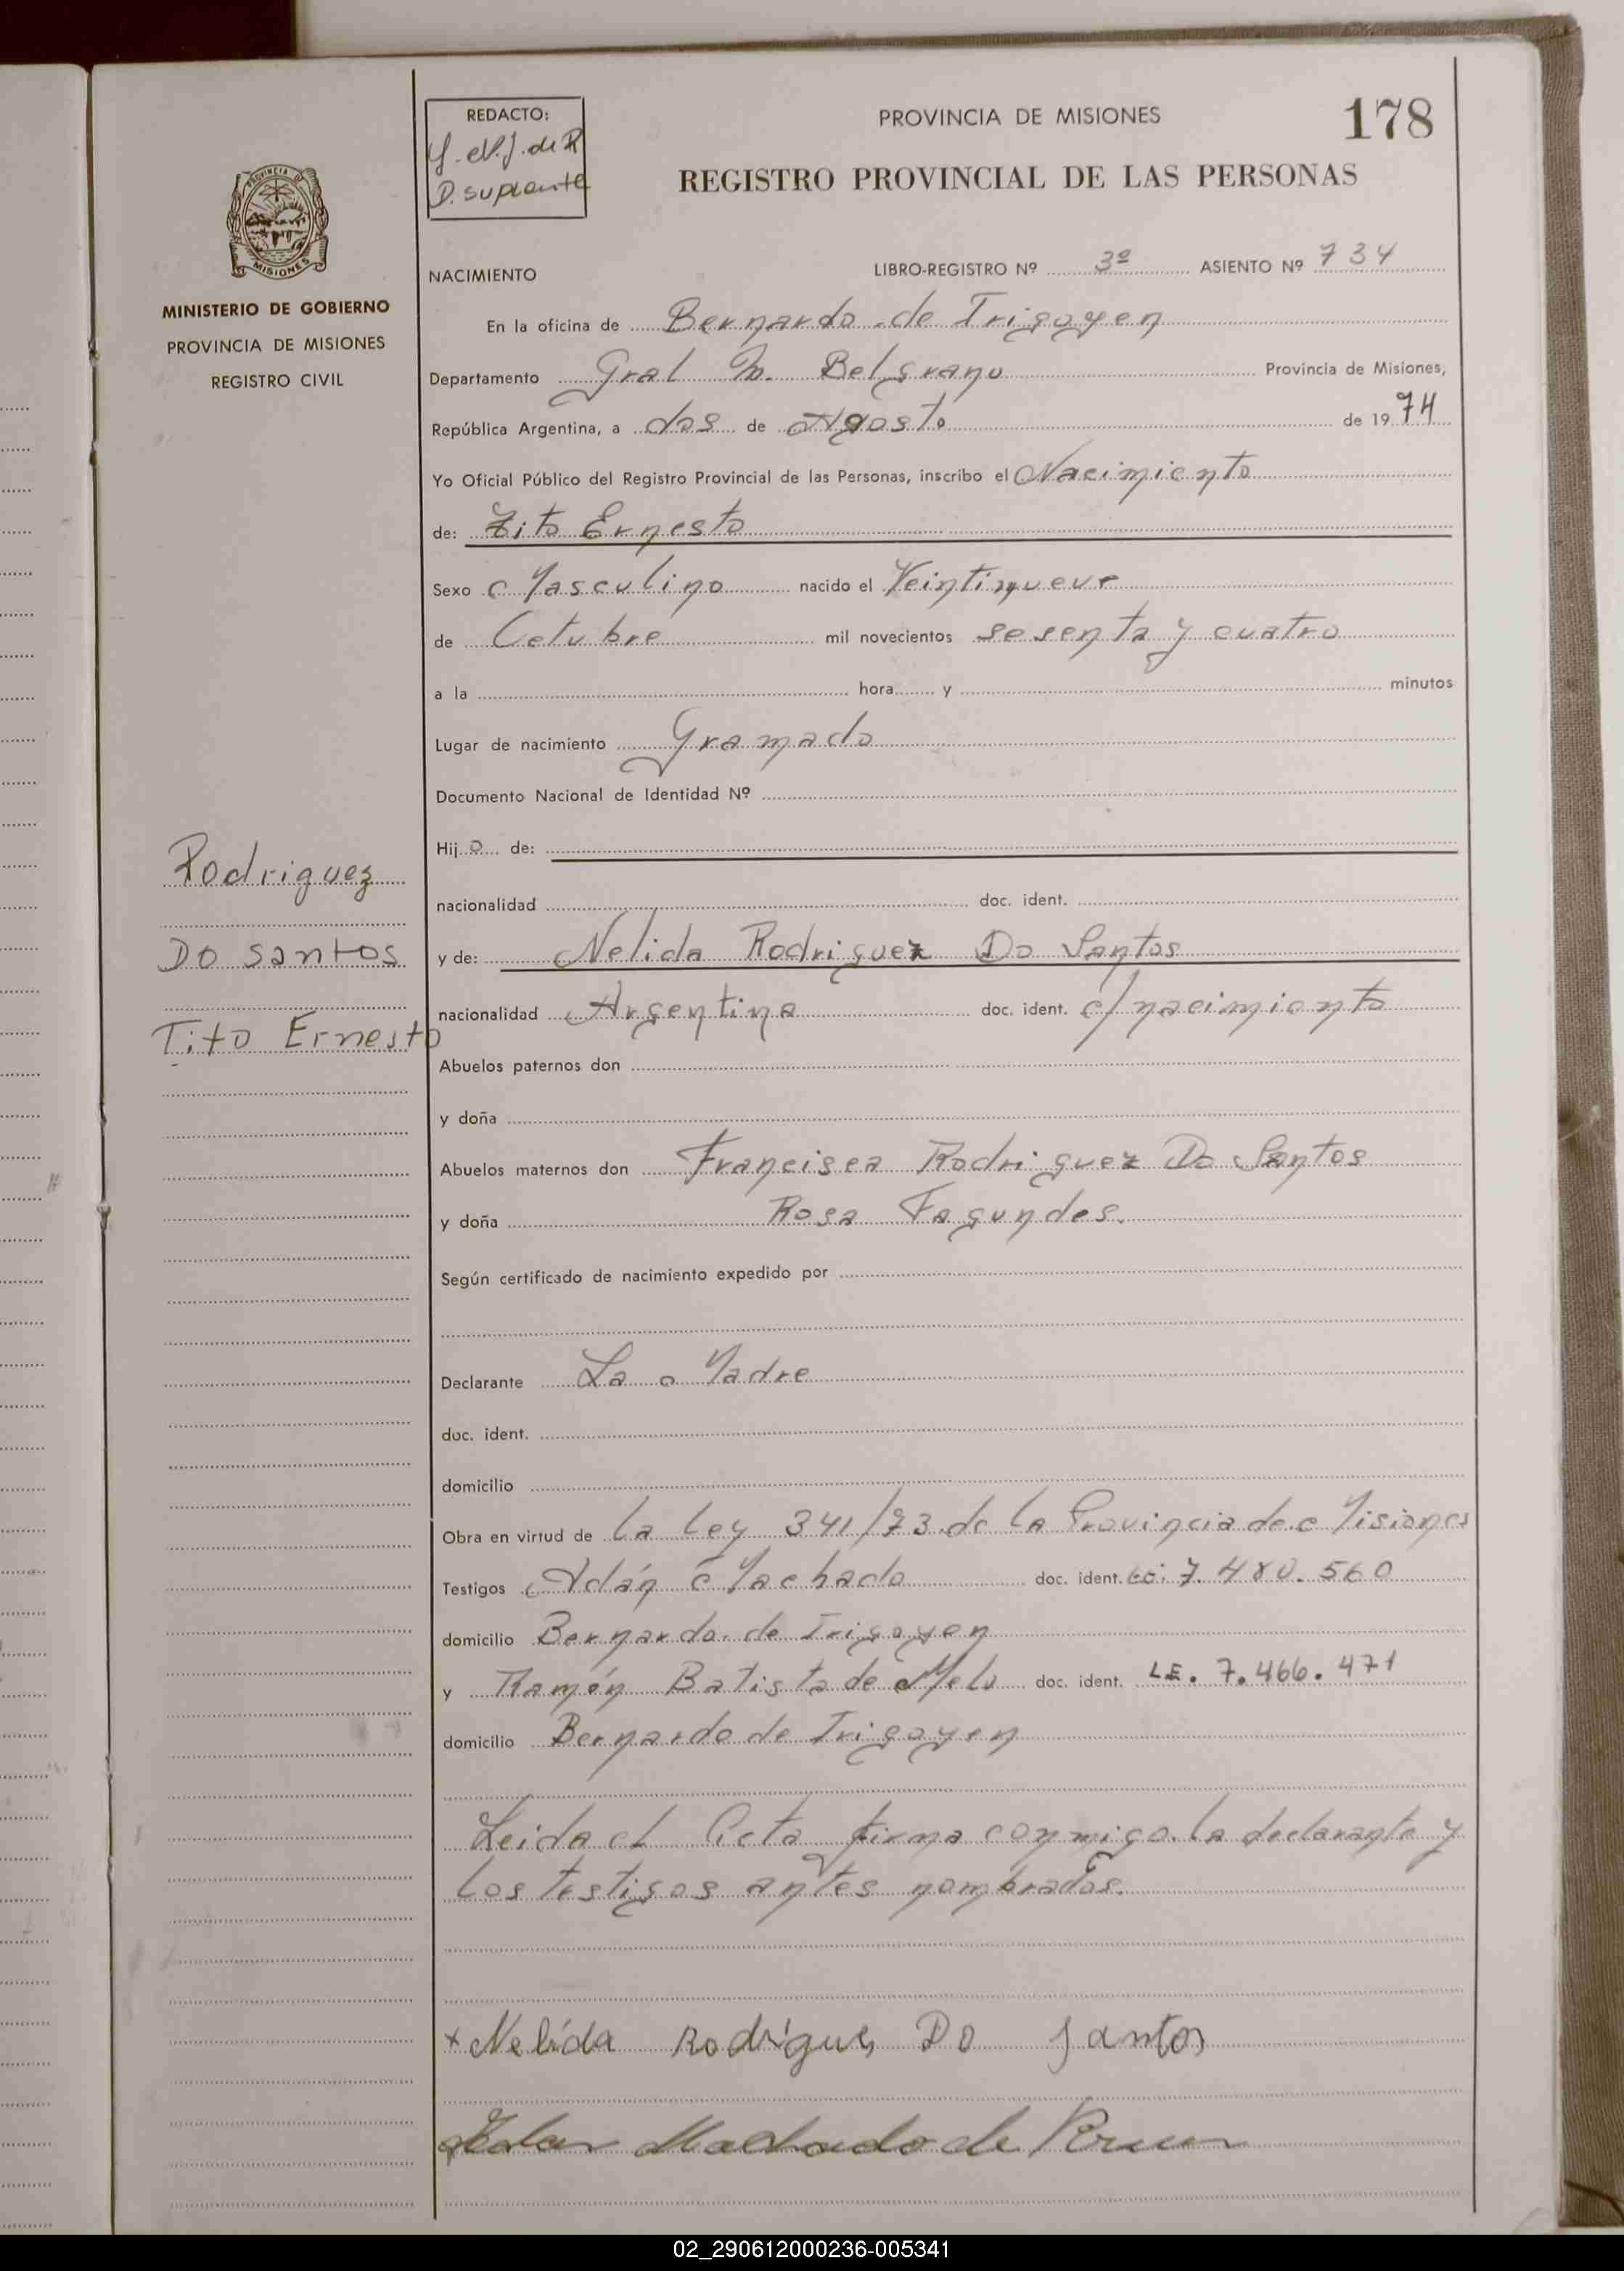 REDACTO:
D. suplente
PROVINCIA DE MISIONES
178
REGISTRO PROVINCIAL DE LAS PERSONAS
MISIONES
MINISTERIO DE GOBIERNO
PROVINCIA DE MISIONES
REGISTRO CIVIL
NACIMIENTO LIBRO-REGISTRO Nº 3º ASIENTO Nº 734
En la oficina de Bernardo de Irigoyen
Departamento Gral M. Belgrano Provincia de Misiones,
República Argentina, a dos de Agosto de 1974
Yo Oficial Público del Registro Provincial de las Personas, inscribo el Nacimiento
de: Tito Ernesto
Sexo Masculino nacido el Veintinueve
de Octubre mil novecientos sesenta y cuatro
a la hora y minutos
Lugar de nacimiento Gramado
Documento Nacional de Identidad Nº
Hijo de:
nacionalidad doc. ident.
y de: Nelida Rodriguez Do Santos
nacionalidad Argentina doc. ident. c/nacimiento
Abuelos paternos don
y doña
Abuelos maternos don Francisca Rodriguez Do Santos
y doña Rosa Fagundes.
Según certificado de nacimiento expedido por
Declarante La Madre
doc. ident.
domicilio
Obra en virtud de la Ley 341/73 de la Provincia de Misiones
Testigos Adán Machado doc. ident. 7.480.560
domicilio Bernardo de Irigoyen
y Ramón Batista de Melo doc. ident. LE. 7.466.471
domicilio Bernardo de Irigoyen
Leida el Acta firma conmigo la declarante y
los testigos antes nombrados.
Rodriguez
Do Santos
Tito Ernesto
+ Nelida Rodrigues Do Santos
02_290612000236-005341